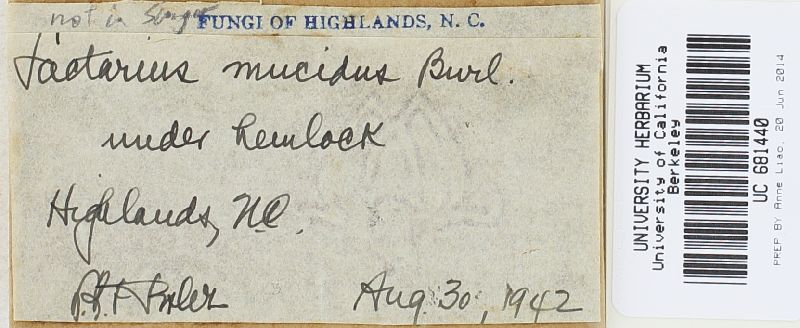 not in Singer
FUNGI OF HIGHLANDS, N. C.
Lactarius mucidus Burl.
under hemlock
Highlands, N.C.
Aug 30, 1942
UNIVERSITY HERBARIUM
University of California
Berkeley
UC 681440
PREP BY Anne Liao, 20 Jun 2014